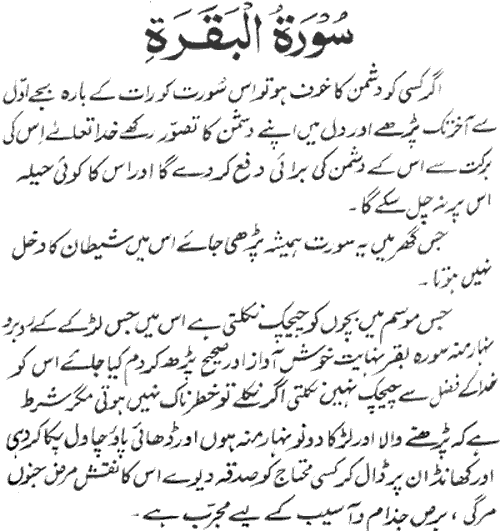 سُوْرَۃُ الْبَقَرَۃِ
اگر کسی کو دشمن کا خوف ہو تو اس سُورت کو رات کے بارہ بجے اوّل
سے آخر تک پڑھے اور دل میں اپنے دشمن کا تصوّر رکھے خدا تعالےٰ اس کی
برکت سے اس کے دشمن کی برائی دفع کر دے گا اور اس کا کوئی حیلہ
اس پر نہ چل سکے گا۔
جس گھر میں یہ سورت ہمیشہ پڑھی جائے اس میں شیطان کا دخل
نہیں ہوتا۔
جس موسم میں بچوں کو چیچک نکلتی ہے اس میں جس لڑکے کے روبرو
نہار منہ سورہ بقر نہایت خوش آواز اور صحیح پڑھ کر دم کیا جائے اس کو
خدا کے فضل سے چیچک نہیں نکلتی اگر نکلے تو خطرناک نہیں ہوتی مگر شرط
ہے کہ پڑھنے والا اور لڑکا دونو نہار منہ ہوں اور ڈھائی پاؤ چاول پکا کر دہی
اور کھانڈ ان پر ڈال کر کسی محتاج کو صدقہ دیوے اس کا نقش مرض جنوں
مرگی، برص جذام و آسیب کے لیے مجرّب ہے۔